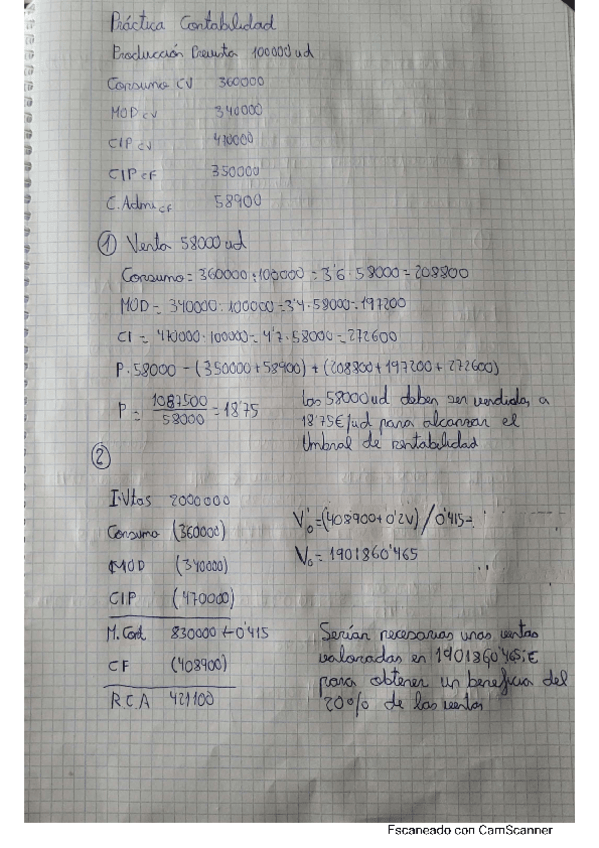 Práctica Contabilidad
Producción Prevista 100000 ud
Consumo CV 360000
MOD CV 340000
CIP CV 470000
CIP CF 350000
C. Admi CF 58900
① Venta 58000 ud
Consumo = 360000:100000 = 3'6·58000 = 208800
MOD = 340000:100000 = 3'4·58000 = 197200
CI = 470000:100000 = 4'7·58000 = 272600
P·58000 - (350000+58900) + (208800+197200+272600)
P = 1087500 / 58000 = 18'75
Las 58000 ud deben ser vendidas a
18'75€/ud para alcanzar el
Umbral de rentabilidad
②
I.Vtas 2000000
Consumo (360000)
MOD (340000)
CIP (470000)
M. Cont 830000 ← 0'415
CF (408900)
R C A 421100
V'o = (408900 + 0'2V) / 0'415 =
Vo = 1901860'465
Serían necesarias unas ventas
valoradas en 1901860'465€
para obtener un beneficio del
20% de las ventas
Escaneado con CamScanner